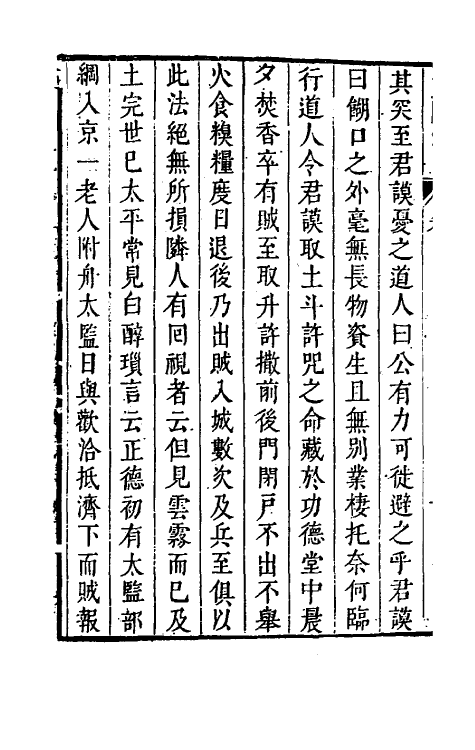 其突至君謨憂之道人曰公有力可徙避之乎君謨
曰餬口之外毫無長物資生且無別業棲托奈何臨
行道人令君謨取土斗許咒之命藏於功德堂中晨
夕焚香卒有賊至取升許撒前後門閉戸不出不舉
火食糗糧度日退後乃出賊入城數次及兵至俱以
此法絕無所損隣人有回視者云但見雲霧而已及
土完世已太平常見白醉瑣言云正德初有太監部
綱入京一老人附舟太監日與歡洽抵濟下而賊報